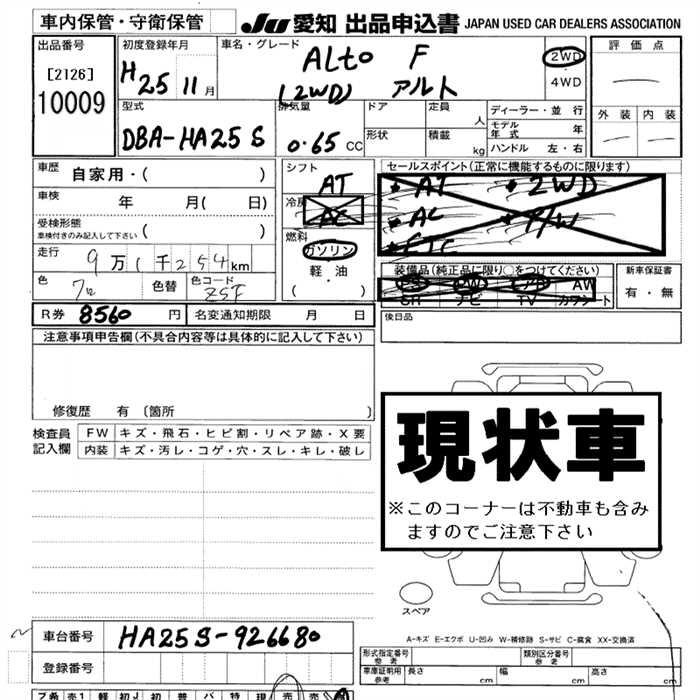 車内保管・守衛保管
JU 愛知 出品申込書 JAPAN USED CAR DEALERS ASSOCIATION
出品番号
[2126]
10009
初度登録年月
H25 11月
車名・グレード
ALto F
(2WD) アルト
2WD
4WD
評価点
外装 内装
型式
DBA-HA25S
排気量
0.65 CC
ドア
形状
定員 人
積載 kg
ディーラー・並行
モデル年式 年
ハンドル 左・右
車歴 自家用・( )
車検 年 月( 日)
受検形態
車検付きのみ記入して下さい ( )
走行 9万1千254km
色
色替
色コード Z5F
シフト AT
冷房 AC
燃料
ガソリン
軽・油
( )
セールスポイント(正常に機能するものに限ります)
★AT ★2WD
★AC ★P/W
★ETC
装備品(純正品に限り○をつけてください)
PS PW エアB AW
SR ナビ TV カワシート
新車保証書
有・無
R券 8560円 名変通知期限 月 日
後日品
注意事項申告欄(不具合内容等は具体的に記入して下さい)
修復歴 有〔箇所 〕
検査員記入欄
FW キズ・飛石・ヒビ割・リペア跡・X要
内装 キズ・汚レ・コゲ・穴・スレ・キレ・破レ
現状車
※このコーナーは不動車も含み
ますのでご注意下さい
スペア
A-キズ E-エクボ U-凹み W-補修跡 S-サビ C-腐食 XX-交換済
車台番号 HA25S-926680
登録番号
形式指定番号 参考
類別区分番号 参考
車庫証明用 参考 長さ cm 幅 cm 高さ cm